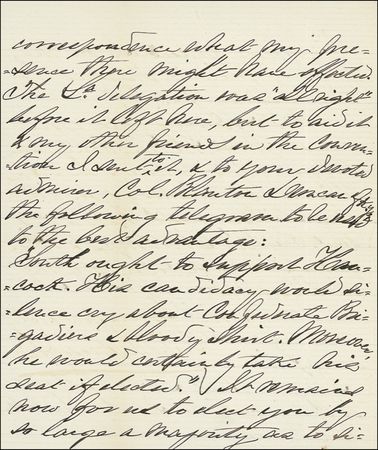 correspondence what my pre-
-sence there might have effected.
The La. delegation was "all right"
before it left here, but to aid it
& my other friends in the Conven-
-tion I sent to it, & to your devoted
admirer, Col. Blanton Duncan of Ky
the following telegram to be used
to the best advantage:
"South ought to support Han-
-cock. His candidacy would si-
-lence cry about Confederate Bri-
-gadiers & bloody Shirt. Moreover
he would certainly take his
seat if elected." It remains
now for us to elect you by
so large a majority as to si-